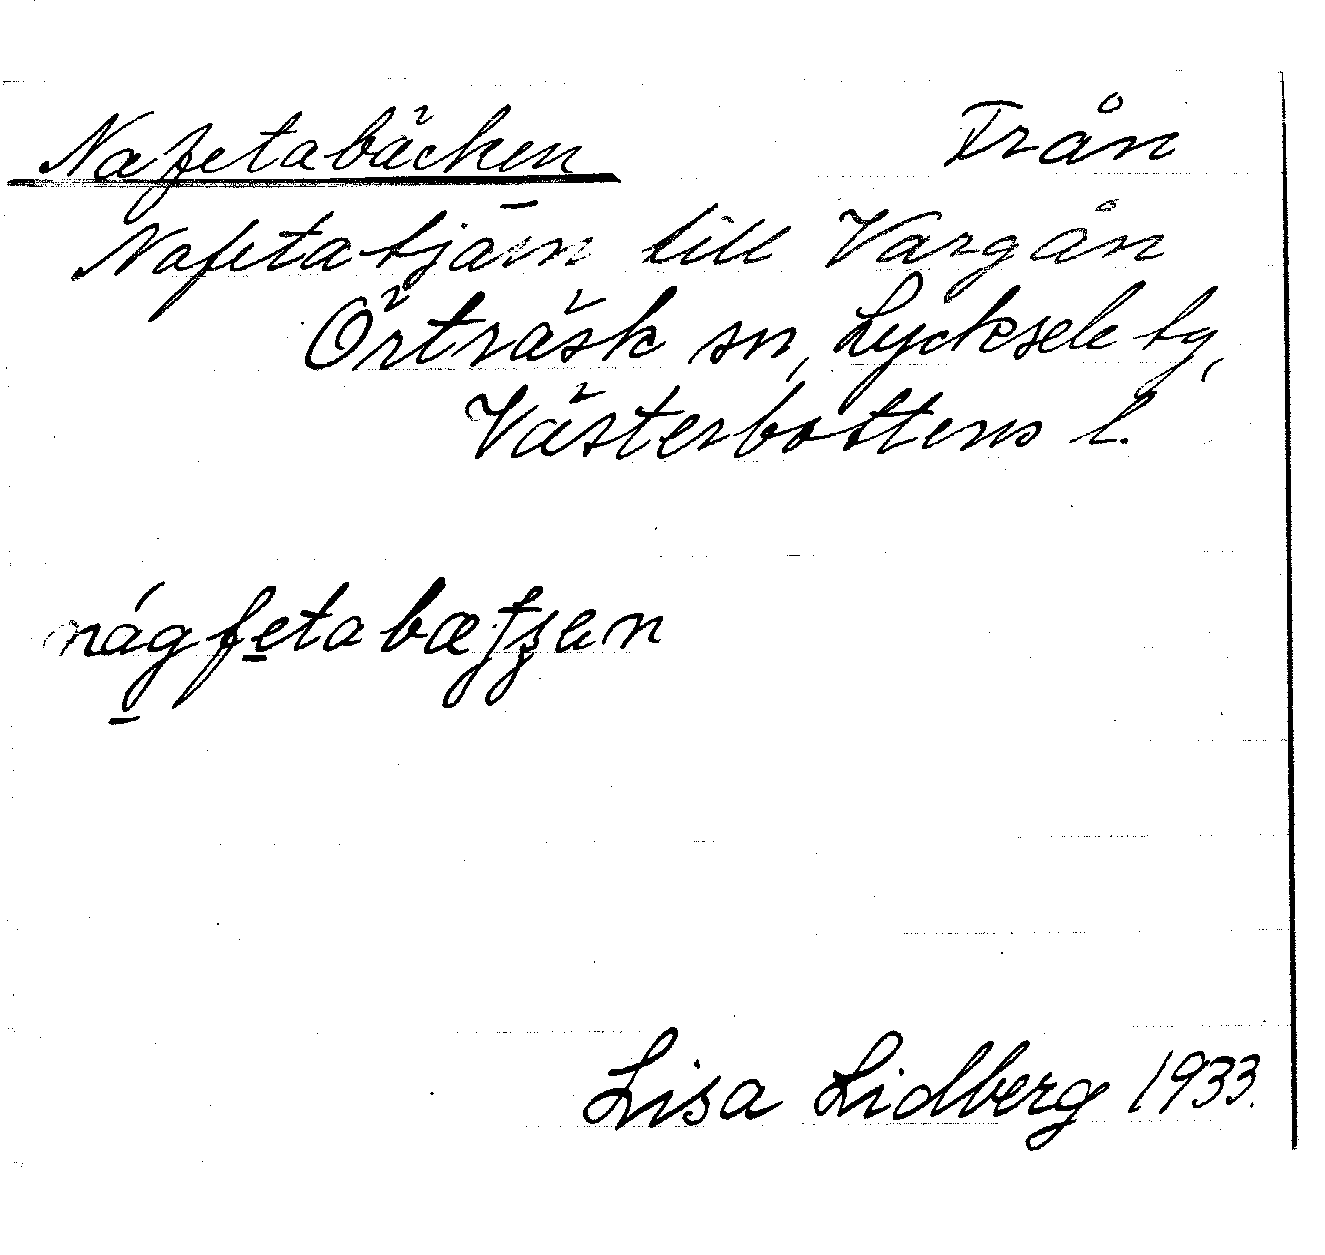 Nafetabäcken Från
Nafetatjärn till Vargån
Örträsk sn, Lycksele ty,
Västerbottens l.
Lisa Lidberg 1933.